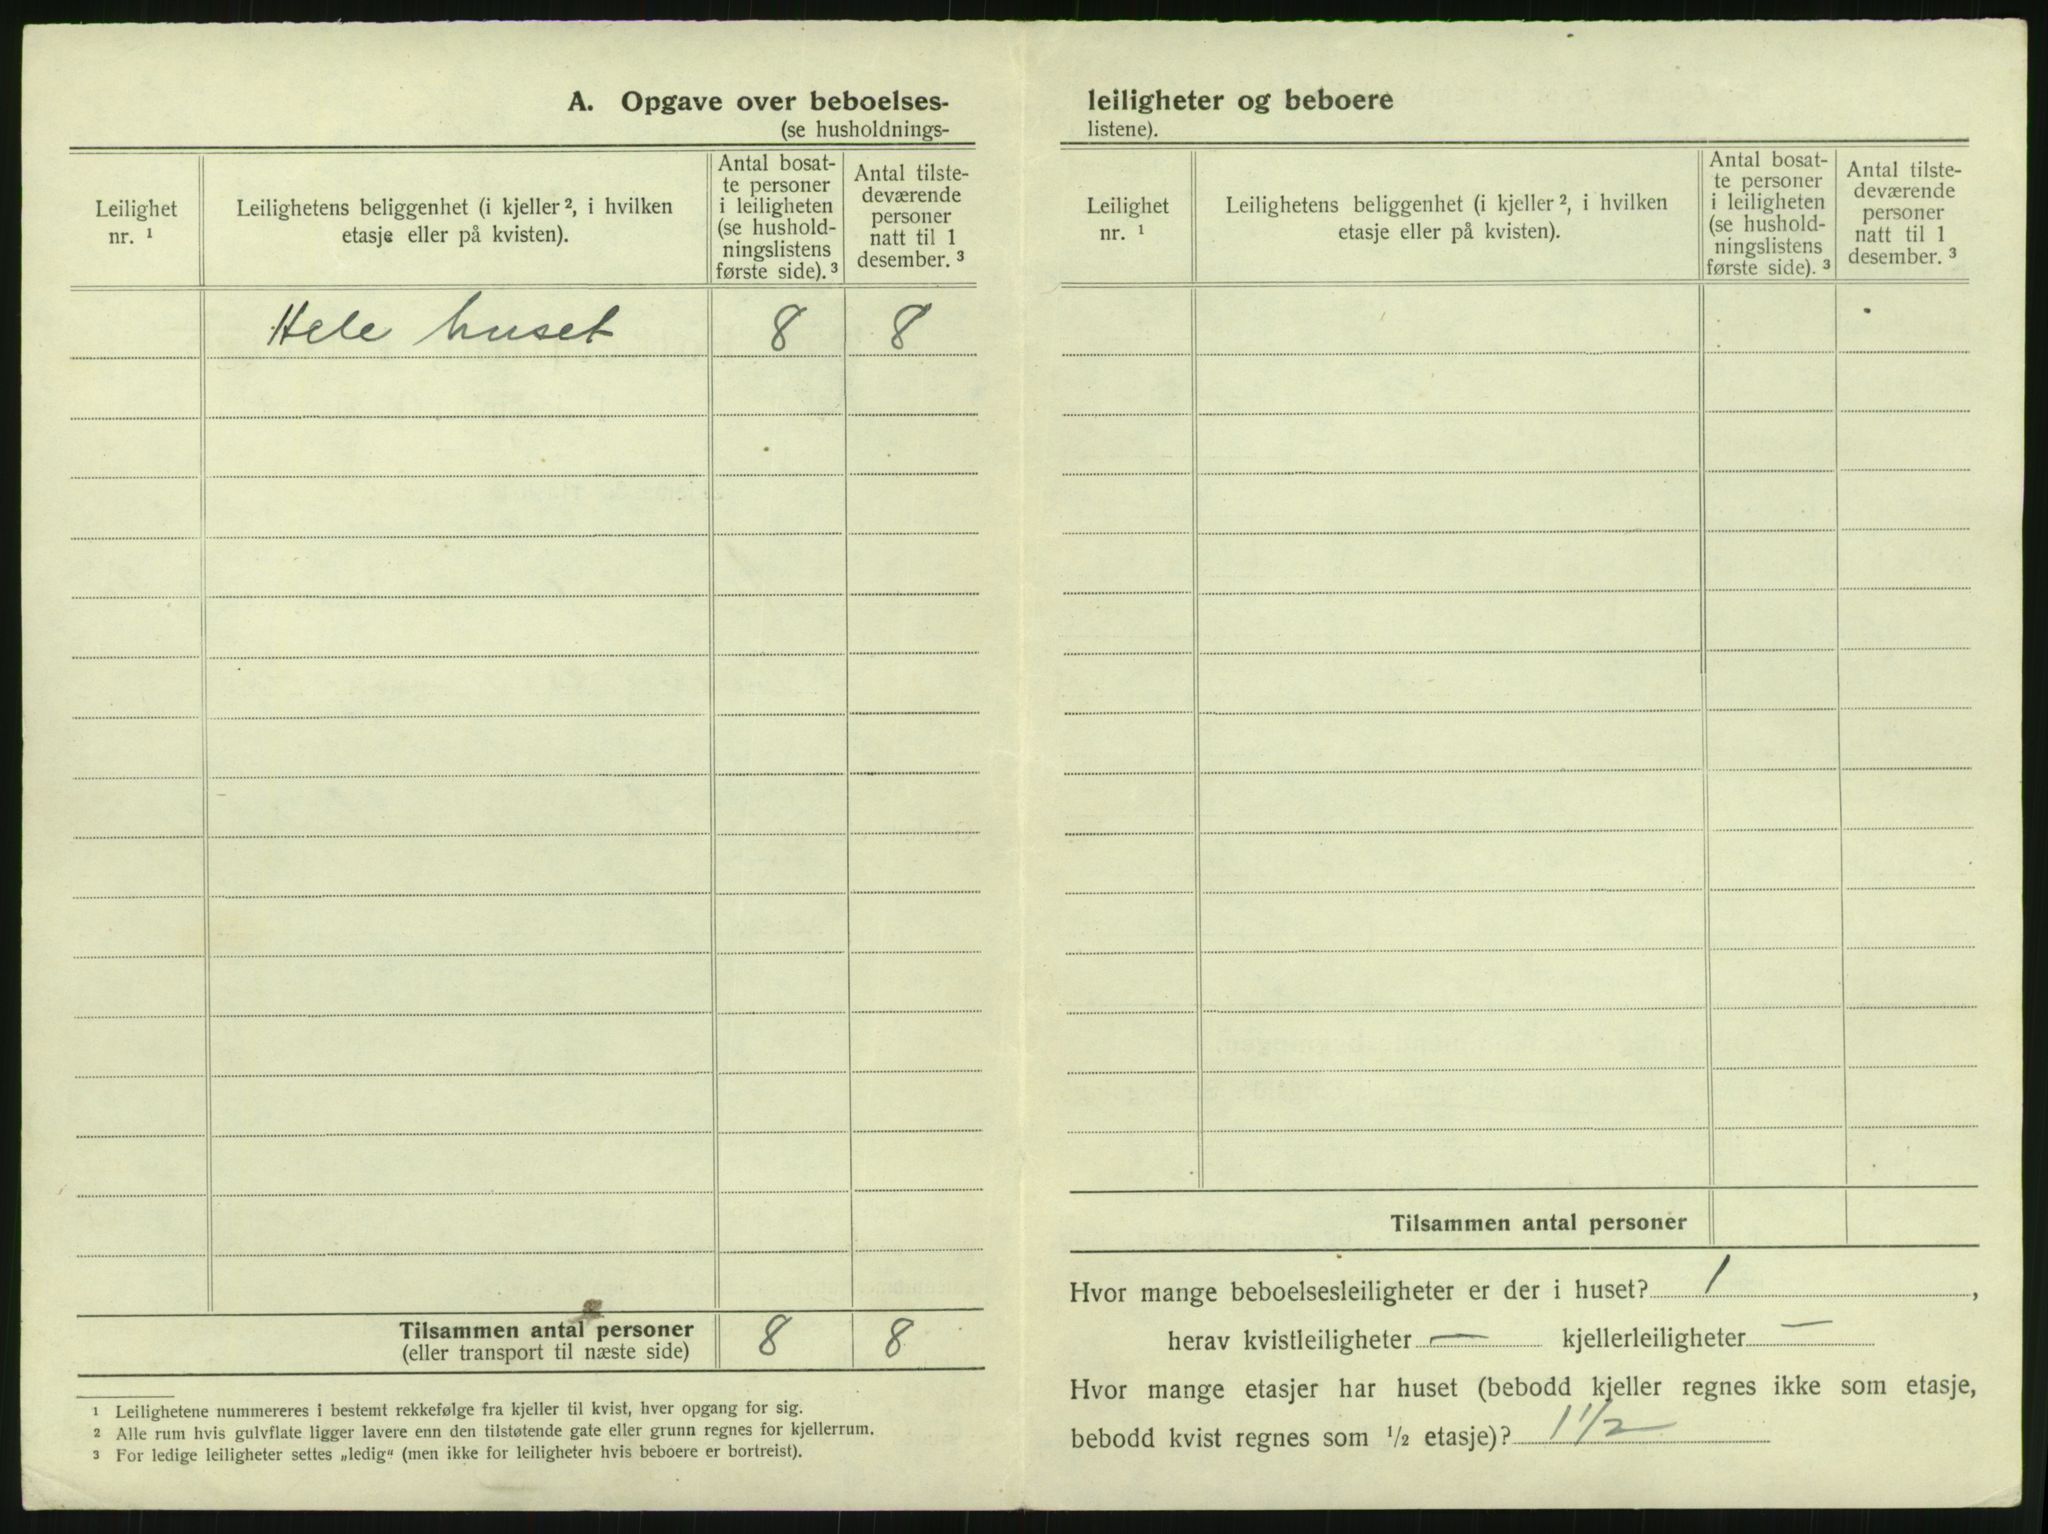 A. Opgave over beboelses-
(se husholdnings-
Leilighet
nr. ¹
Leilighetens beliggenhet (i kjeller ², i hvilken
etasje eller på kvisten).
Antal bosat-
te personer
i leiligheten
(se hushold-
ningslistens
første side). ³
Antal tilste-
deværende
personer
natt til 1
desember. ³
Hele huset 8 8
Tilsammen antal personer 8 8
(eller transport til næste side)
¹ Leilighetene nummereres i bestemt rekkefølge fra kjeller til kvist, hver opgang for sig.
² Alle rum hvis gulvflate ligger lavere enn den tilstøtende gate eller grunn regnes for kjellerrum.
³ For ledige leiligheter settes „ledig“ (men ikke for leiligheter hvis beboere er bortreist).
leiligheter og beboere
listene).
Leilighet
nr. ¹
Leilighetens beliggenhet (i kjeller ², i hvilken
etasje eller på kvisten).
Antal bosat-
te personer
i leiligheten
(se hushold-
ningslistens
første side). ³
Antal tilste-
deværende
personer
natt til 1
desember. ³
Tilsammen antal personer
Hvor mange beboelsesleiligheter er der i huset? 1,
herav kvistleiligheter — kjellerleiligheter —
Hvor mange etasjer har huset (bebodd kjeller regnes ikke som etasje,
bebodd kvist regnes som ½ etasje)? 1½